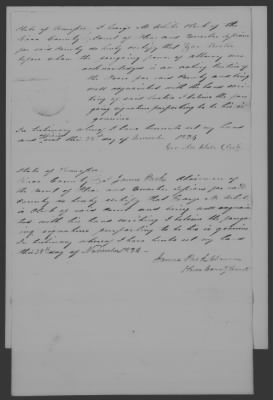 State of Tennessee I George M White Clerk of the
County Court of Pleas and Quarter Sessions
for said County do hereby certify that
before whom the foregoing power of attorney was
acknowledged is an acting Justice of
the Peace for said County and being
well acquainted with the hand writ
ing of said I believe the fore
going signature purporting to be his is
genuine
In testimony whereof I have hereunto set my hand
and this 28th day of November 1836
Geo. M. White Clerk
State of Tennessee
County I James Park Chairman of
the Court of Pleas and Quarter Sessions for said
County do hereby certify that George M. White
is Clerk of said Court and being well acquain
ted with his hand writing I believe the forego
ing signature purporting to be his is genuine
In testimony whereof I have hereto set my hand
this 28th day of November 1836
James Park Chairman